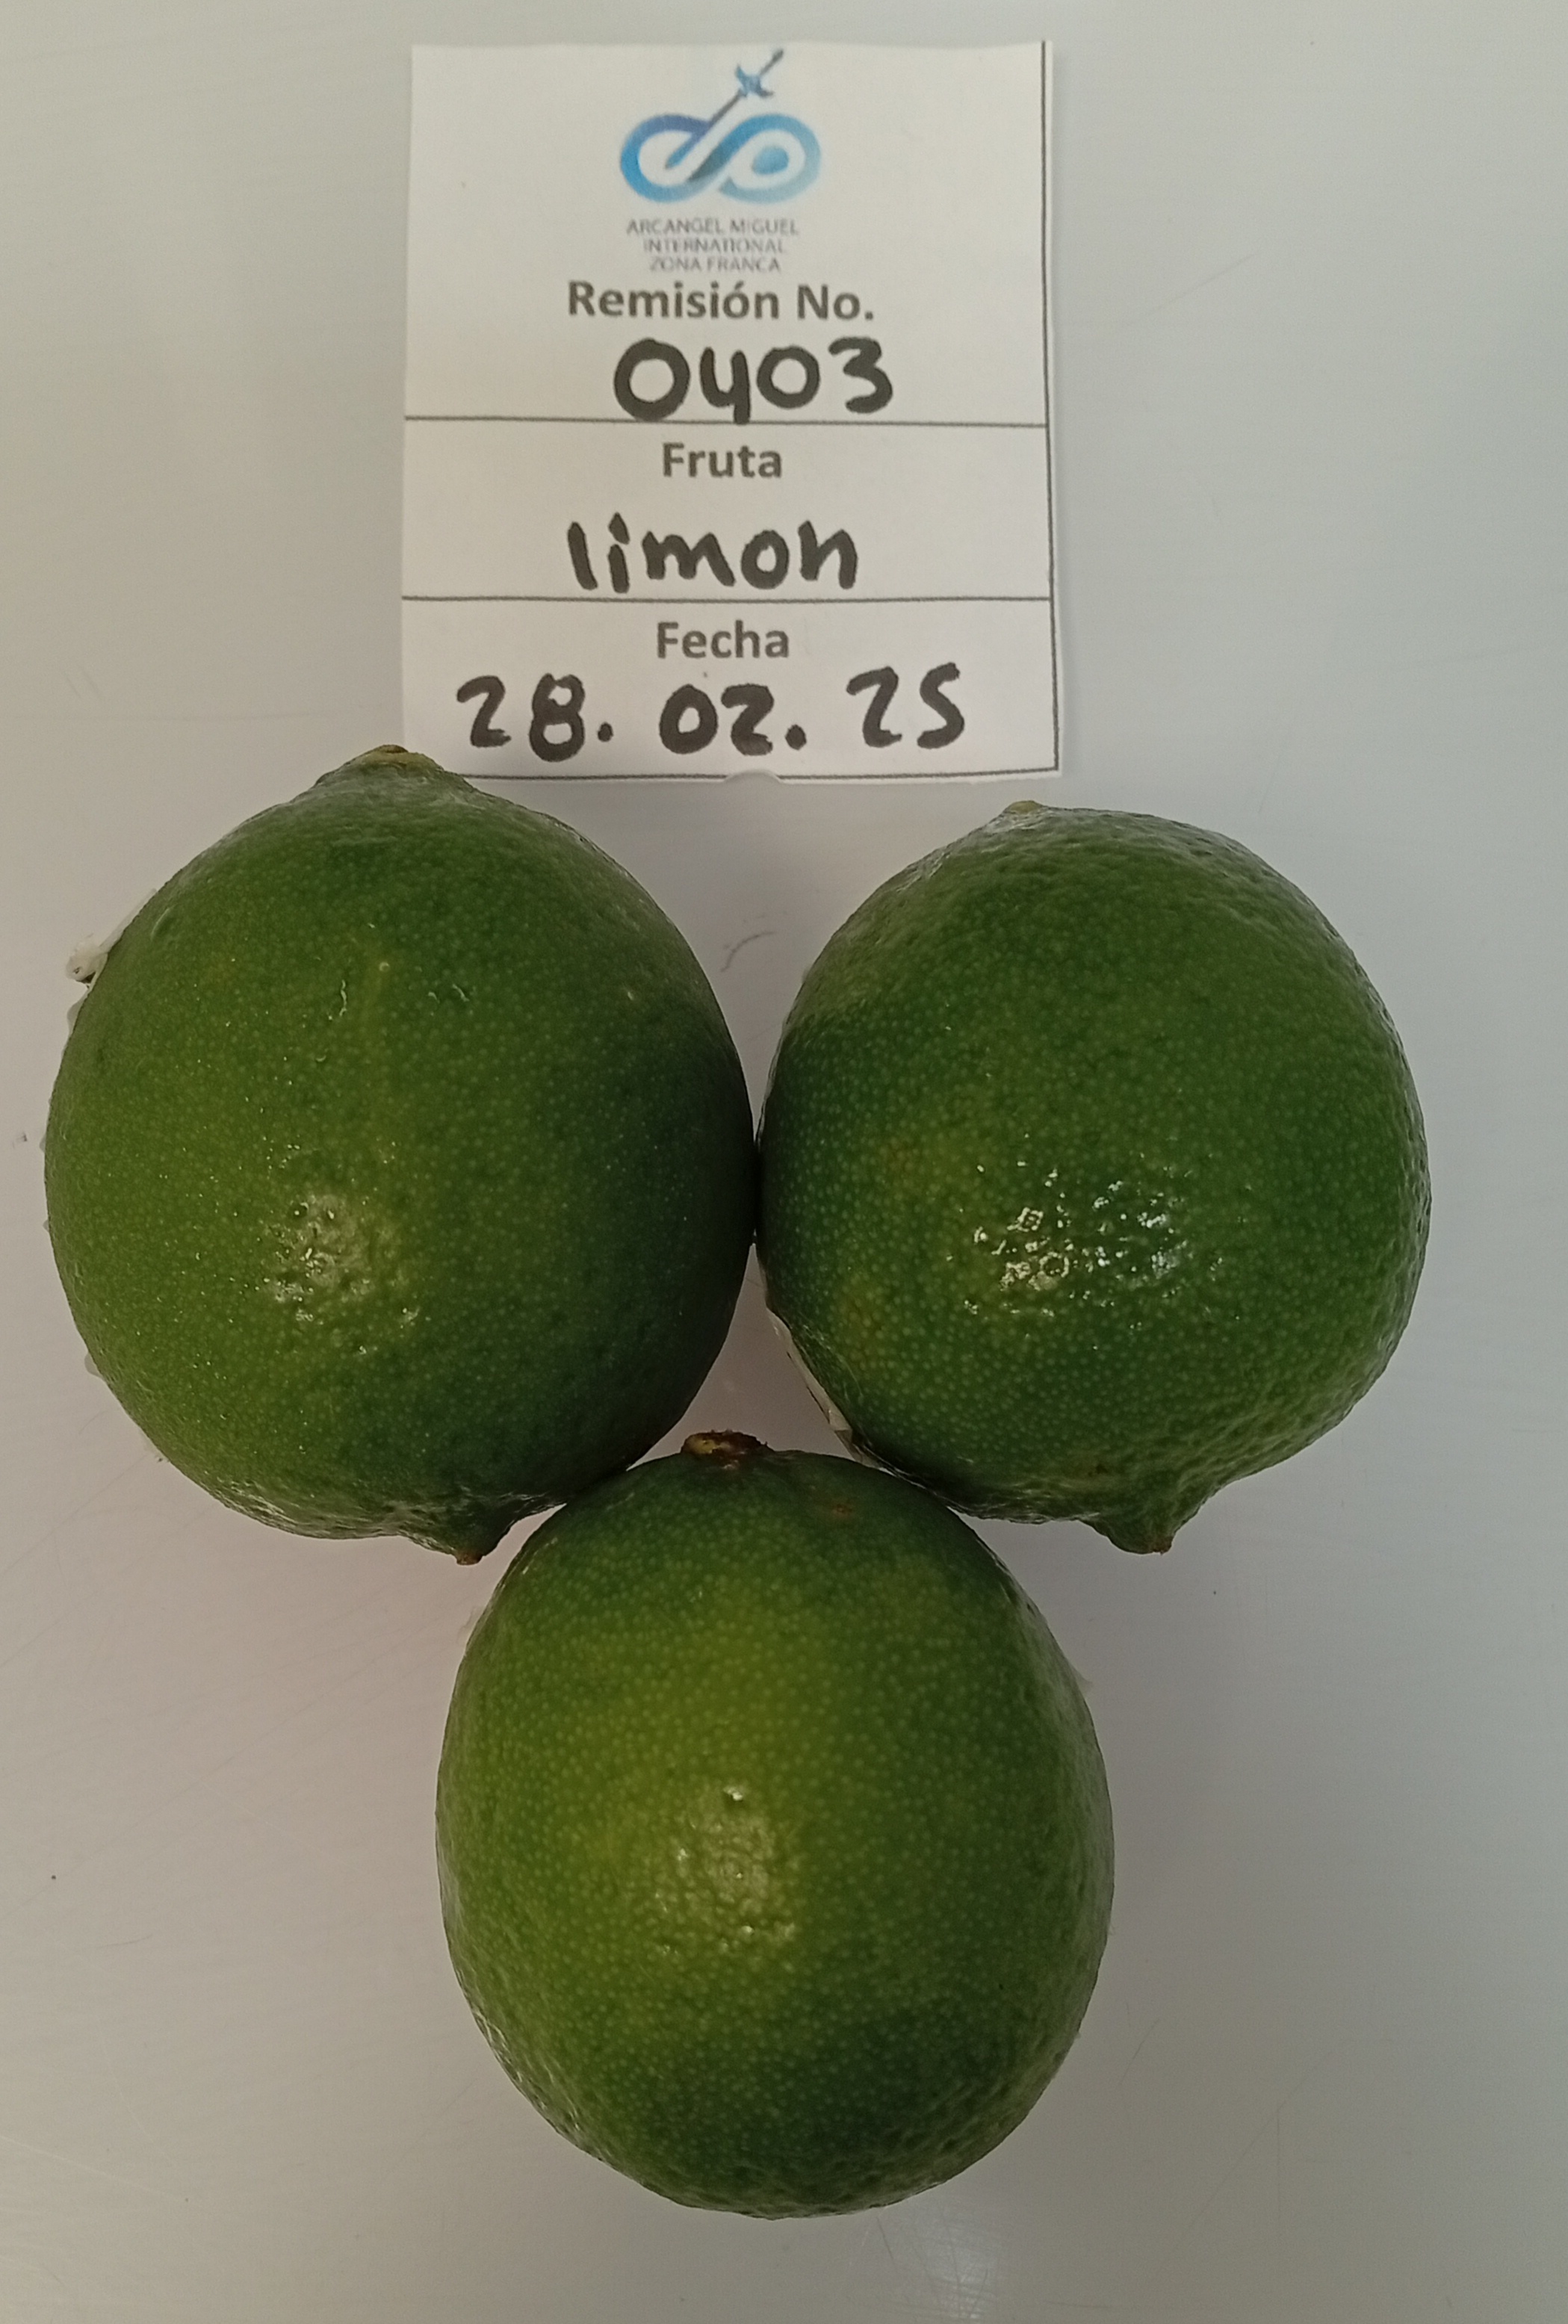 ARCANGEL MIGUEL
INTERNATIONAL
ZONA FRANCA
Remisión No.
0403
Fruta
limon
Fecha
28. 02. 25